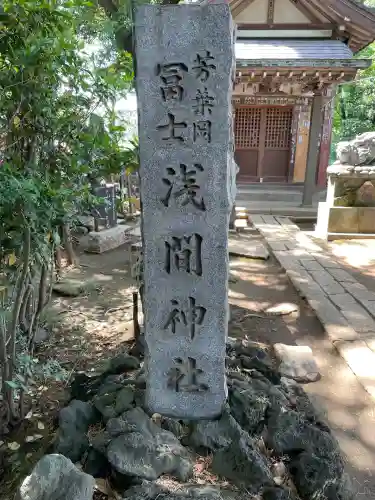 芳葉岡
冨士浅間神社